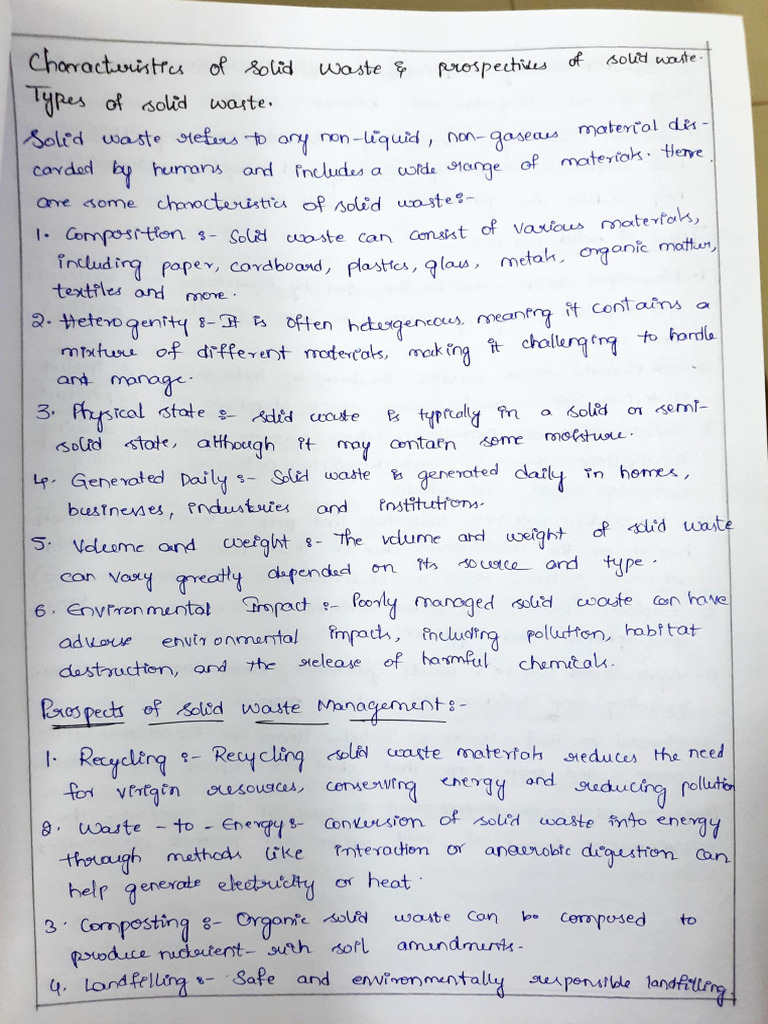 Characteristics of solid waste & prospectives of solid waste.
Types of solid waste.
Solid waste refers to any non-liquid, non-gaseous material dis-
carded by humans and includes a wide range of materials. Here
are some characteristics of solid waste:-
1. Composition :- Solid waste can consist of various materials,
including paper, cardboard, plastics, glass, metals, organic matter,
textiles and more.
2. Heterogenity :- It is often hetergeneous, meaning it contains a
mixture of different materials, making it challenging to handle
and manage.
3. Physical state :- solid waste is typically in a solid or semi-
solid state, although it may contain some moisture.
4. Generated Daily :- Solid waste is generated daily in homes,
businesses, industries and institutions.
5. Volume and weight :- The volume and weight of solid waste
can vary greatly depended on its source and type.
6. Environmental Impact :- Poorly managed solid waste can have
adverse environmental impacts, including pollution, habitat
destruction, and the release of harmful chemicals.
Prospects of Solid Waste Management :-
1. Recycling :- Recycling solid waste materials reduces the need
for virigin resources, conserving energy and reducing pollution
2. Waste - to - Energy :- conversion of solid waste into energy
through methods like interaction or anaerobic digestion can
help generate electricity or heat.
3. Composting :- Organic solid waste can be composed to
produce nutrient- rith soil amendments.
4. Landfilling :- Safe and environmentally responsible landfilling,